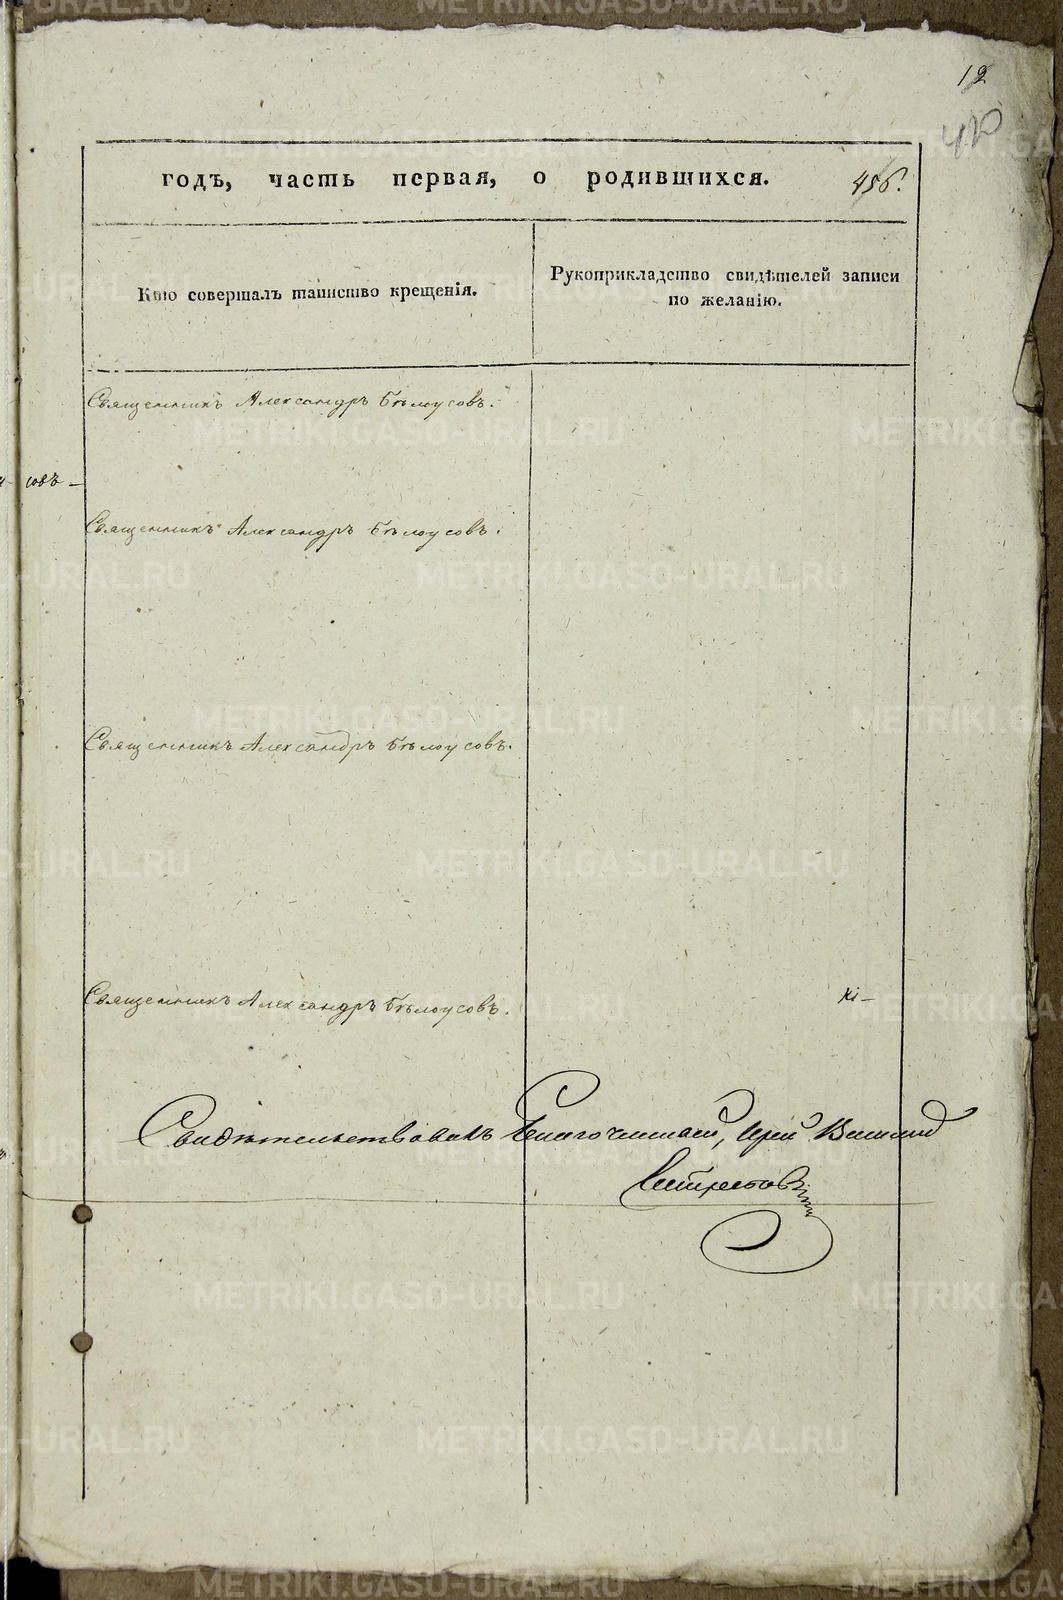 12
456.
годъ, часть первая, о родившихся.
Кто совершалъ таинство крещенія.
Рукоприкладство свидѣтелей записи
по желанію.
Священникъ Александръ Бѣлоусовъ.
совъ –
Священникъ Александръ Бѣлоусовъ.
Священникъ Александръ Бѣлоусовъ.
Священникъ Александръ Бѣлоусовъ.
кі –
Свидѣтельствовалъ Благочинный, Іерей
METRIKI.GASO-URAL.RU